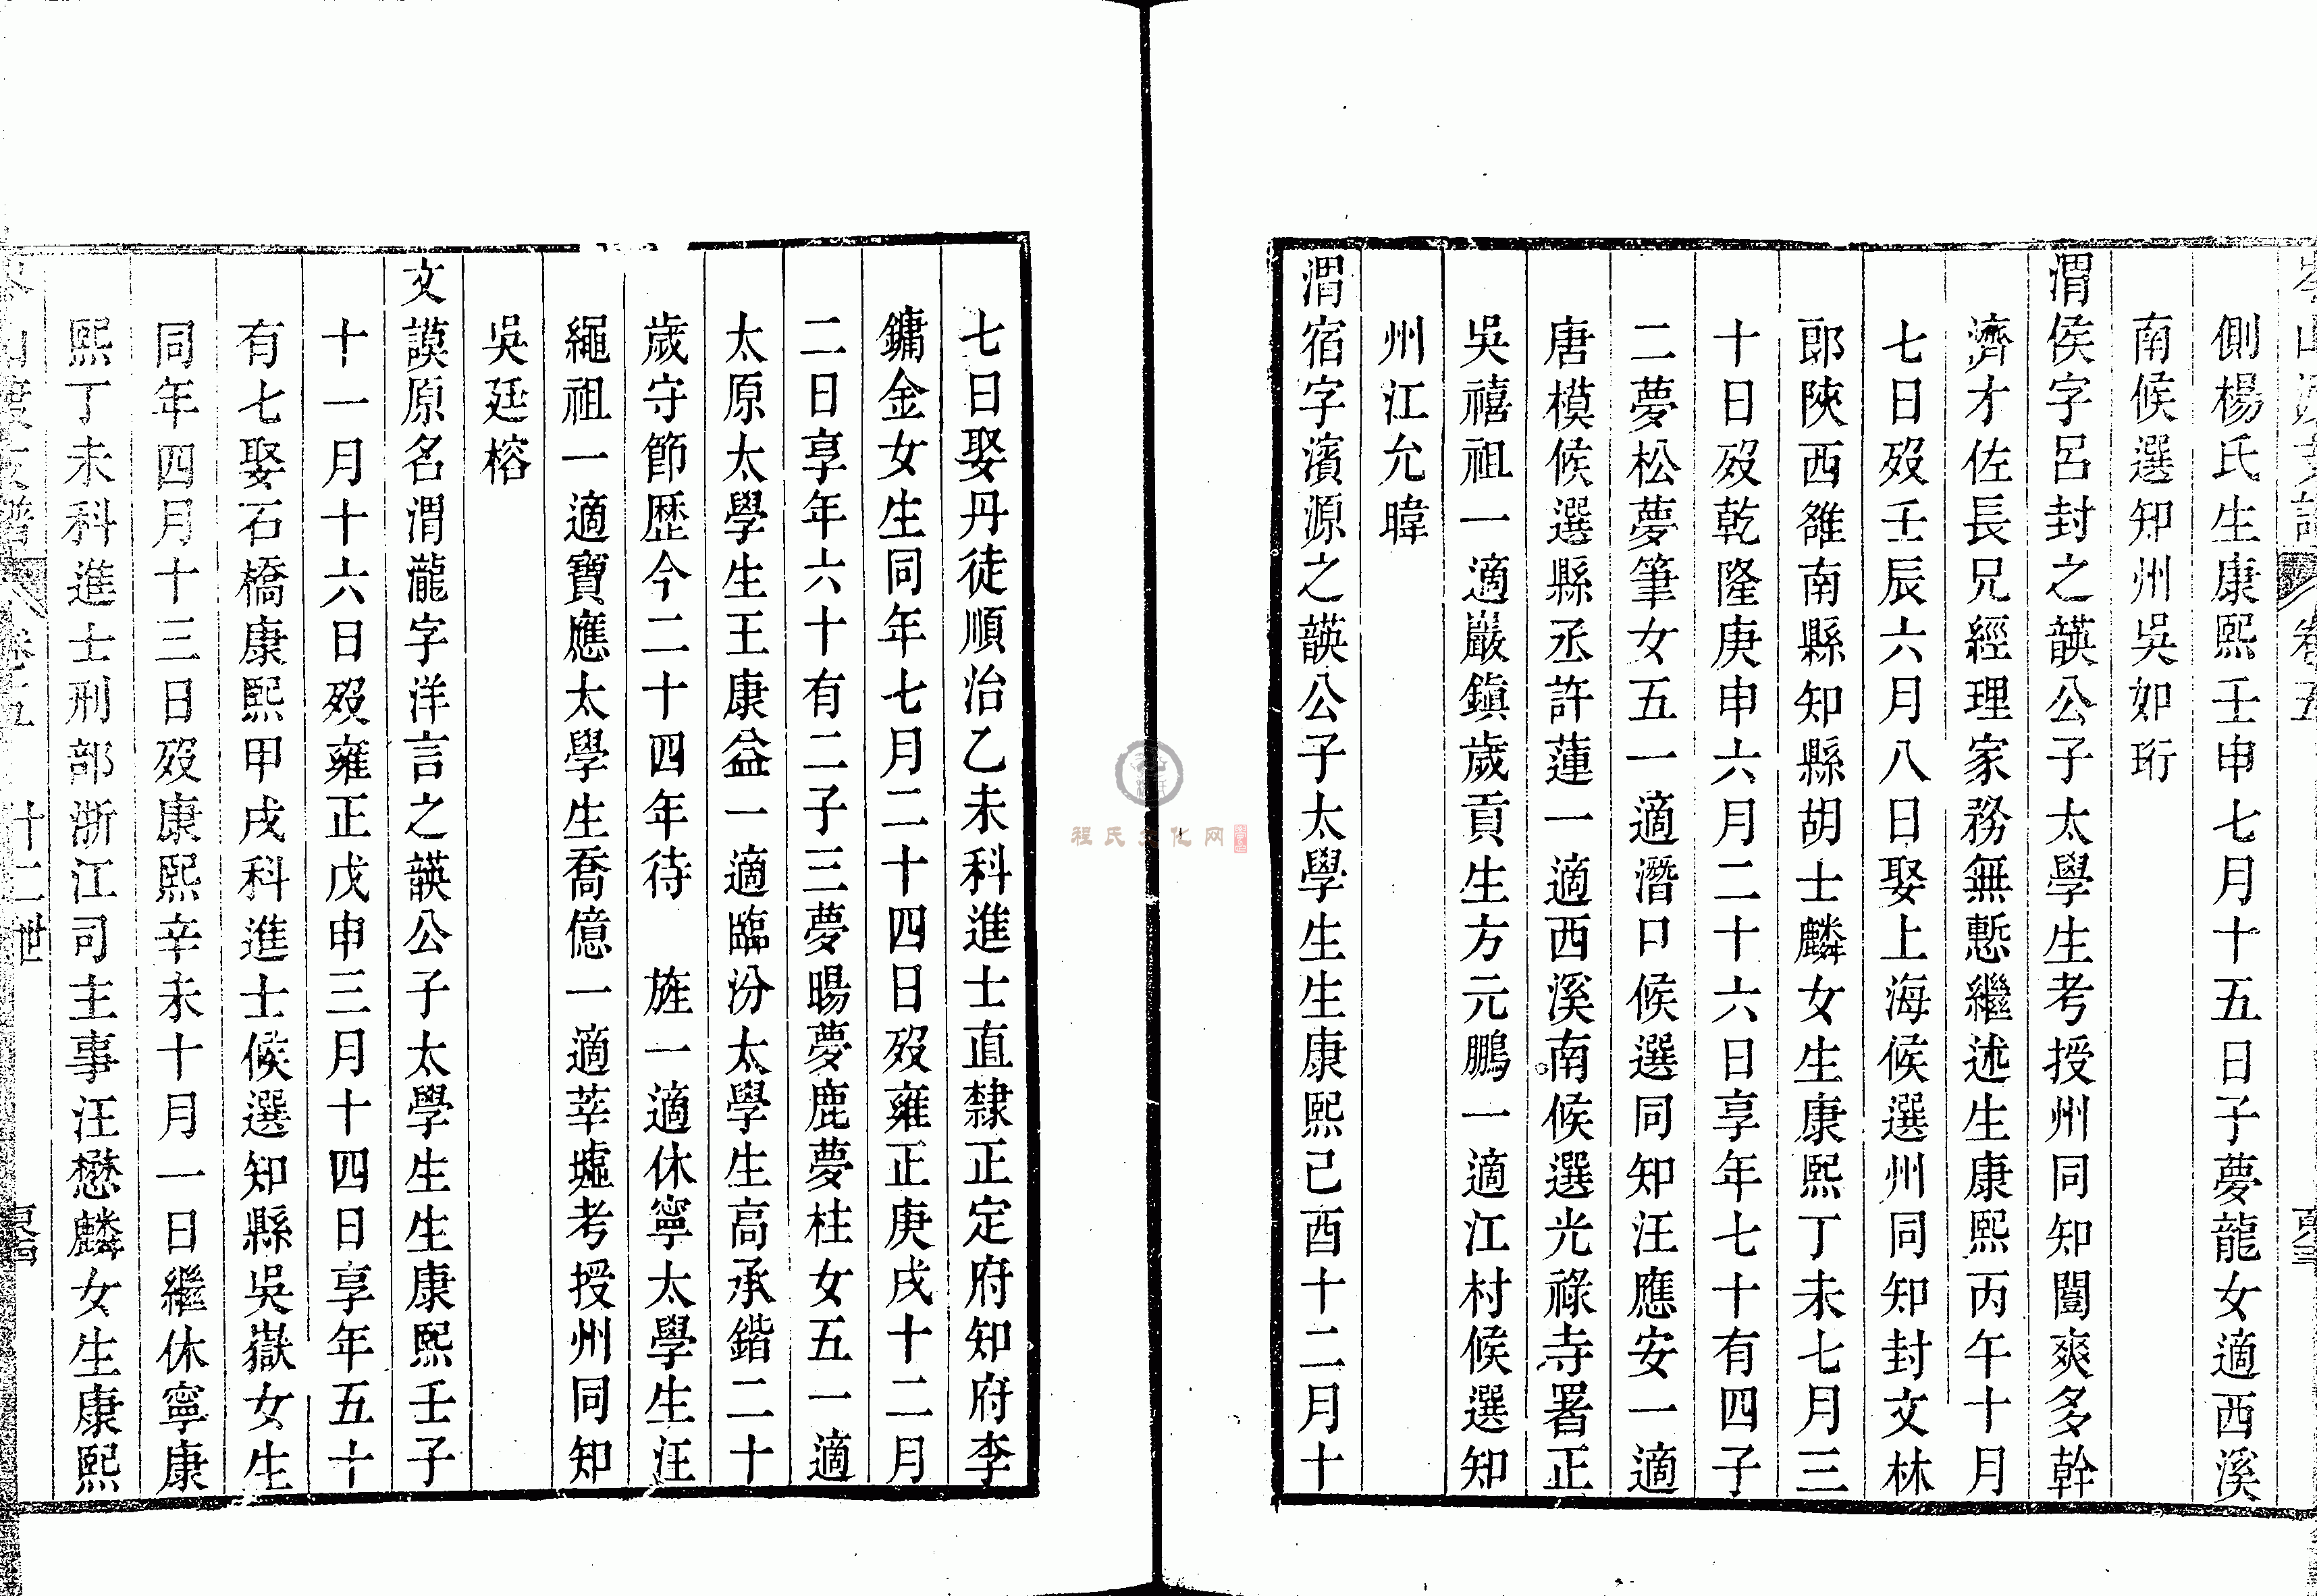 側楊氏生康熙壬申七月十五日子夢龍女適西溪
南候選知州吳如珩
渭侯字呂封之韺公子太學生考授州同知闓爽多幹
濟才佐長兄經理家務無慙繼述生康熙丙午十月
七日歿壬辰六月八日娶上海候選州同知封文林
郎陝西雒南縣知縣胡士麟女生康熙丁未七月三
十日歿乾隆庚申六月二十六日享年七十有四子
二夢松夢筆女五一適潛口候選同知汪應安一適
唐模候選縣丞許蓮一適西溪南候選光祿寺署正
吳禧祖一適巖鎮歲貢生方元鵬一適江村候選知
州江允暐
渭宿字濱源之韺公子太學生生康熙己酉十二月十
七日娶丹徒順治乙未科進士直隸正定府知府李
鏞金女生同年七月二十四日歿雍正庚戌十二月
二日享年六十有二子三夢暘夢鹿夢柱女五一適
太原太學生王康益一適臨汾太學生高承鍇二十
歲守節歷今二十四年待 旌一適休寧太學生汪
繩祖一適寶應太學生喬億一適莘墟考授州同知
吳廷榕
文謨原名渭瀧字洋言之韺公子太學生生康熙壬子
十一月十六日歿雍正戊申三月十四日享年五十
有七娶石橋康熙甲戌科進士候選知縣吳嶽女生
同年四月十三日歿康熙辛未十月一日繼休寧康
熙丁未科進士刑部浙江司主事汪懋麟女生康熙
卷五 十二世
程氏文化网